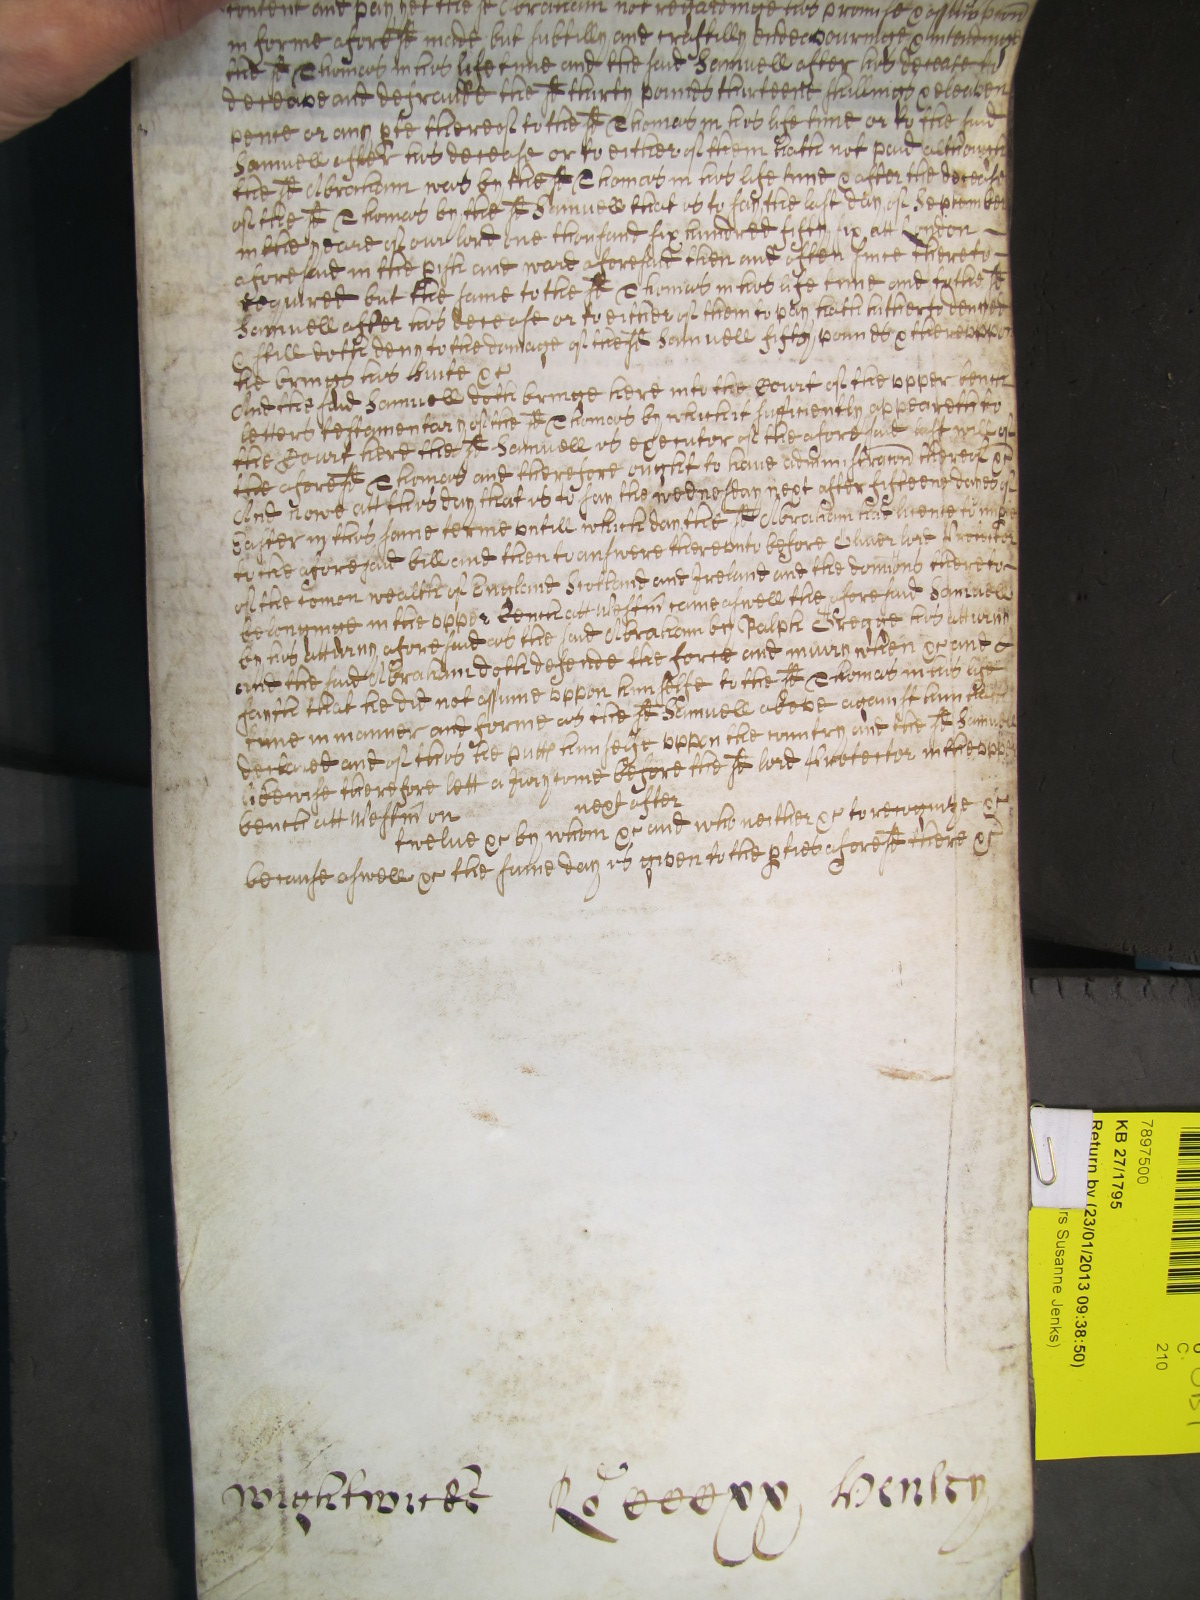 content and pay yet the sd Abraham not regardinge his promise & assumpcon
in forme aforesd made but subtilly and craftilly endeavouringe & intendinge
the sd Thomas in his life time and the said Samuell after his decease to
deceave and defraude the sd thirty pounds thirteene shillings & eleaven
pence or any pte thereof to the sd Thomas in his life time or to the said
Samuell after his decease or to either of them hath not paid although
the sd Abraham was by the sd Thomas in his life time & after the decease
of the sd Thomas by the sd Samuell that is to say the last day of September
in the yeare of our lord one thousand six hundred fifty six att London
aforesaid in the pish and ward aforesaid then and often since thereto
required but the same to the sd Thomas in his life time and to the sd
Samuell after his decease or to either of them to pay hath hitherto denyed
& still doth deny to the damage of the sd Samuell fifty pounds & thereuppon
he brings his suite &c
And the said Samuell doth bringe here into the Court of the upper bench
letters testamentary of the sd Thomas by which it sufficiently appeareth to
the Court here the sd Samuell is executor of the aforesaid last will of
the aforesd Thomas and therefore ought to have administracon thereof &c
And nowe att this day that is to say the wednesday next after fifteene dayes of
Easter in this same terme untill which day the sd Abraham had licence to imple
to the aforesaid bill and then to answere thereunto before Oliver lord Protector
of the comon wealth of England Scotland and Ireland and the dominions thereto
belonginge in the upper bench att Westm came aswell the aforesaid Samuell
by his atturny aforesaid as the said Abraham by Ralph Gregge his atturny
and the said Abraham doth defende the force and iniury when &c and
sayth that he did not assume uppon himselfe to the sd Thomas in his life
time in manner and forme as the sd Samuell above against him hath
declared and of this he putts himselfe uppon the country and the sd Samuell
likewise therefore lett a Jury come before the sd lord Protector in the upper
bench att Westm on next after
twelve &c by whom &c and who neither &c to recognize &c
because aswell &c the same day is given to the pties aforesd there &c
Wightwicke Ro ccccxx Henley
7897500
KB 27/1795
Return by (23/01/2013 09:38:50)
rs Susanne Jenks)
210